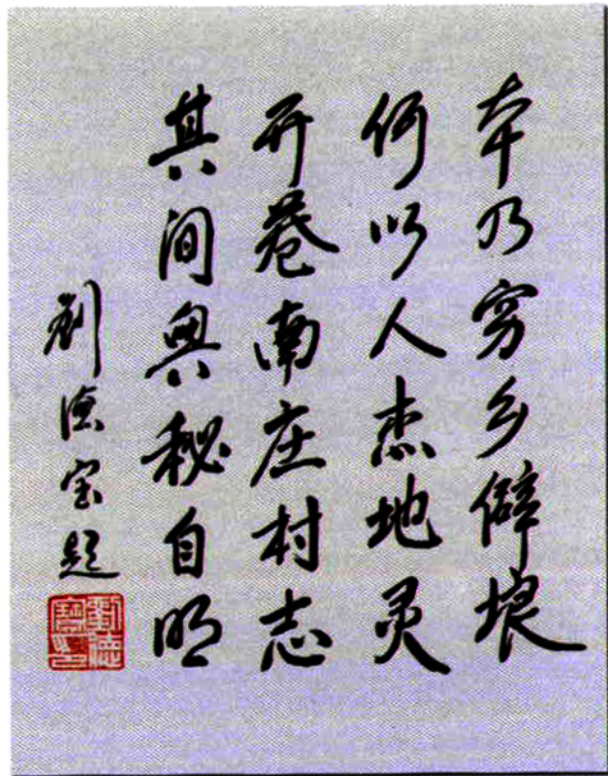 本乃穷乡僻壤
何以人杰地灵
开卷南庄村志
其间奥秘自明
刘德宝题
劉德
寶印